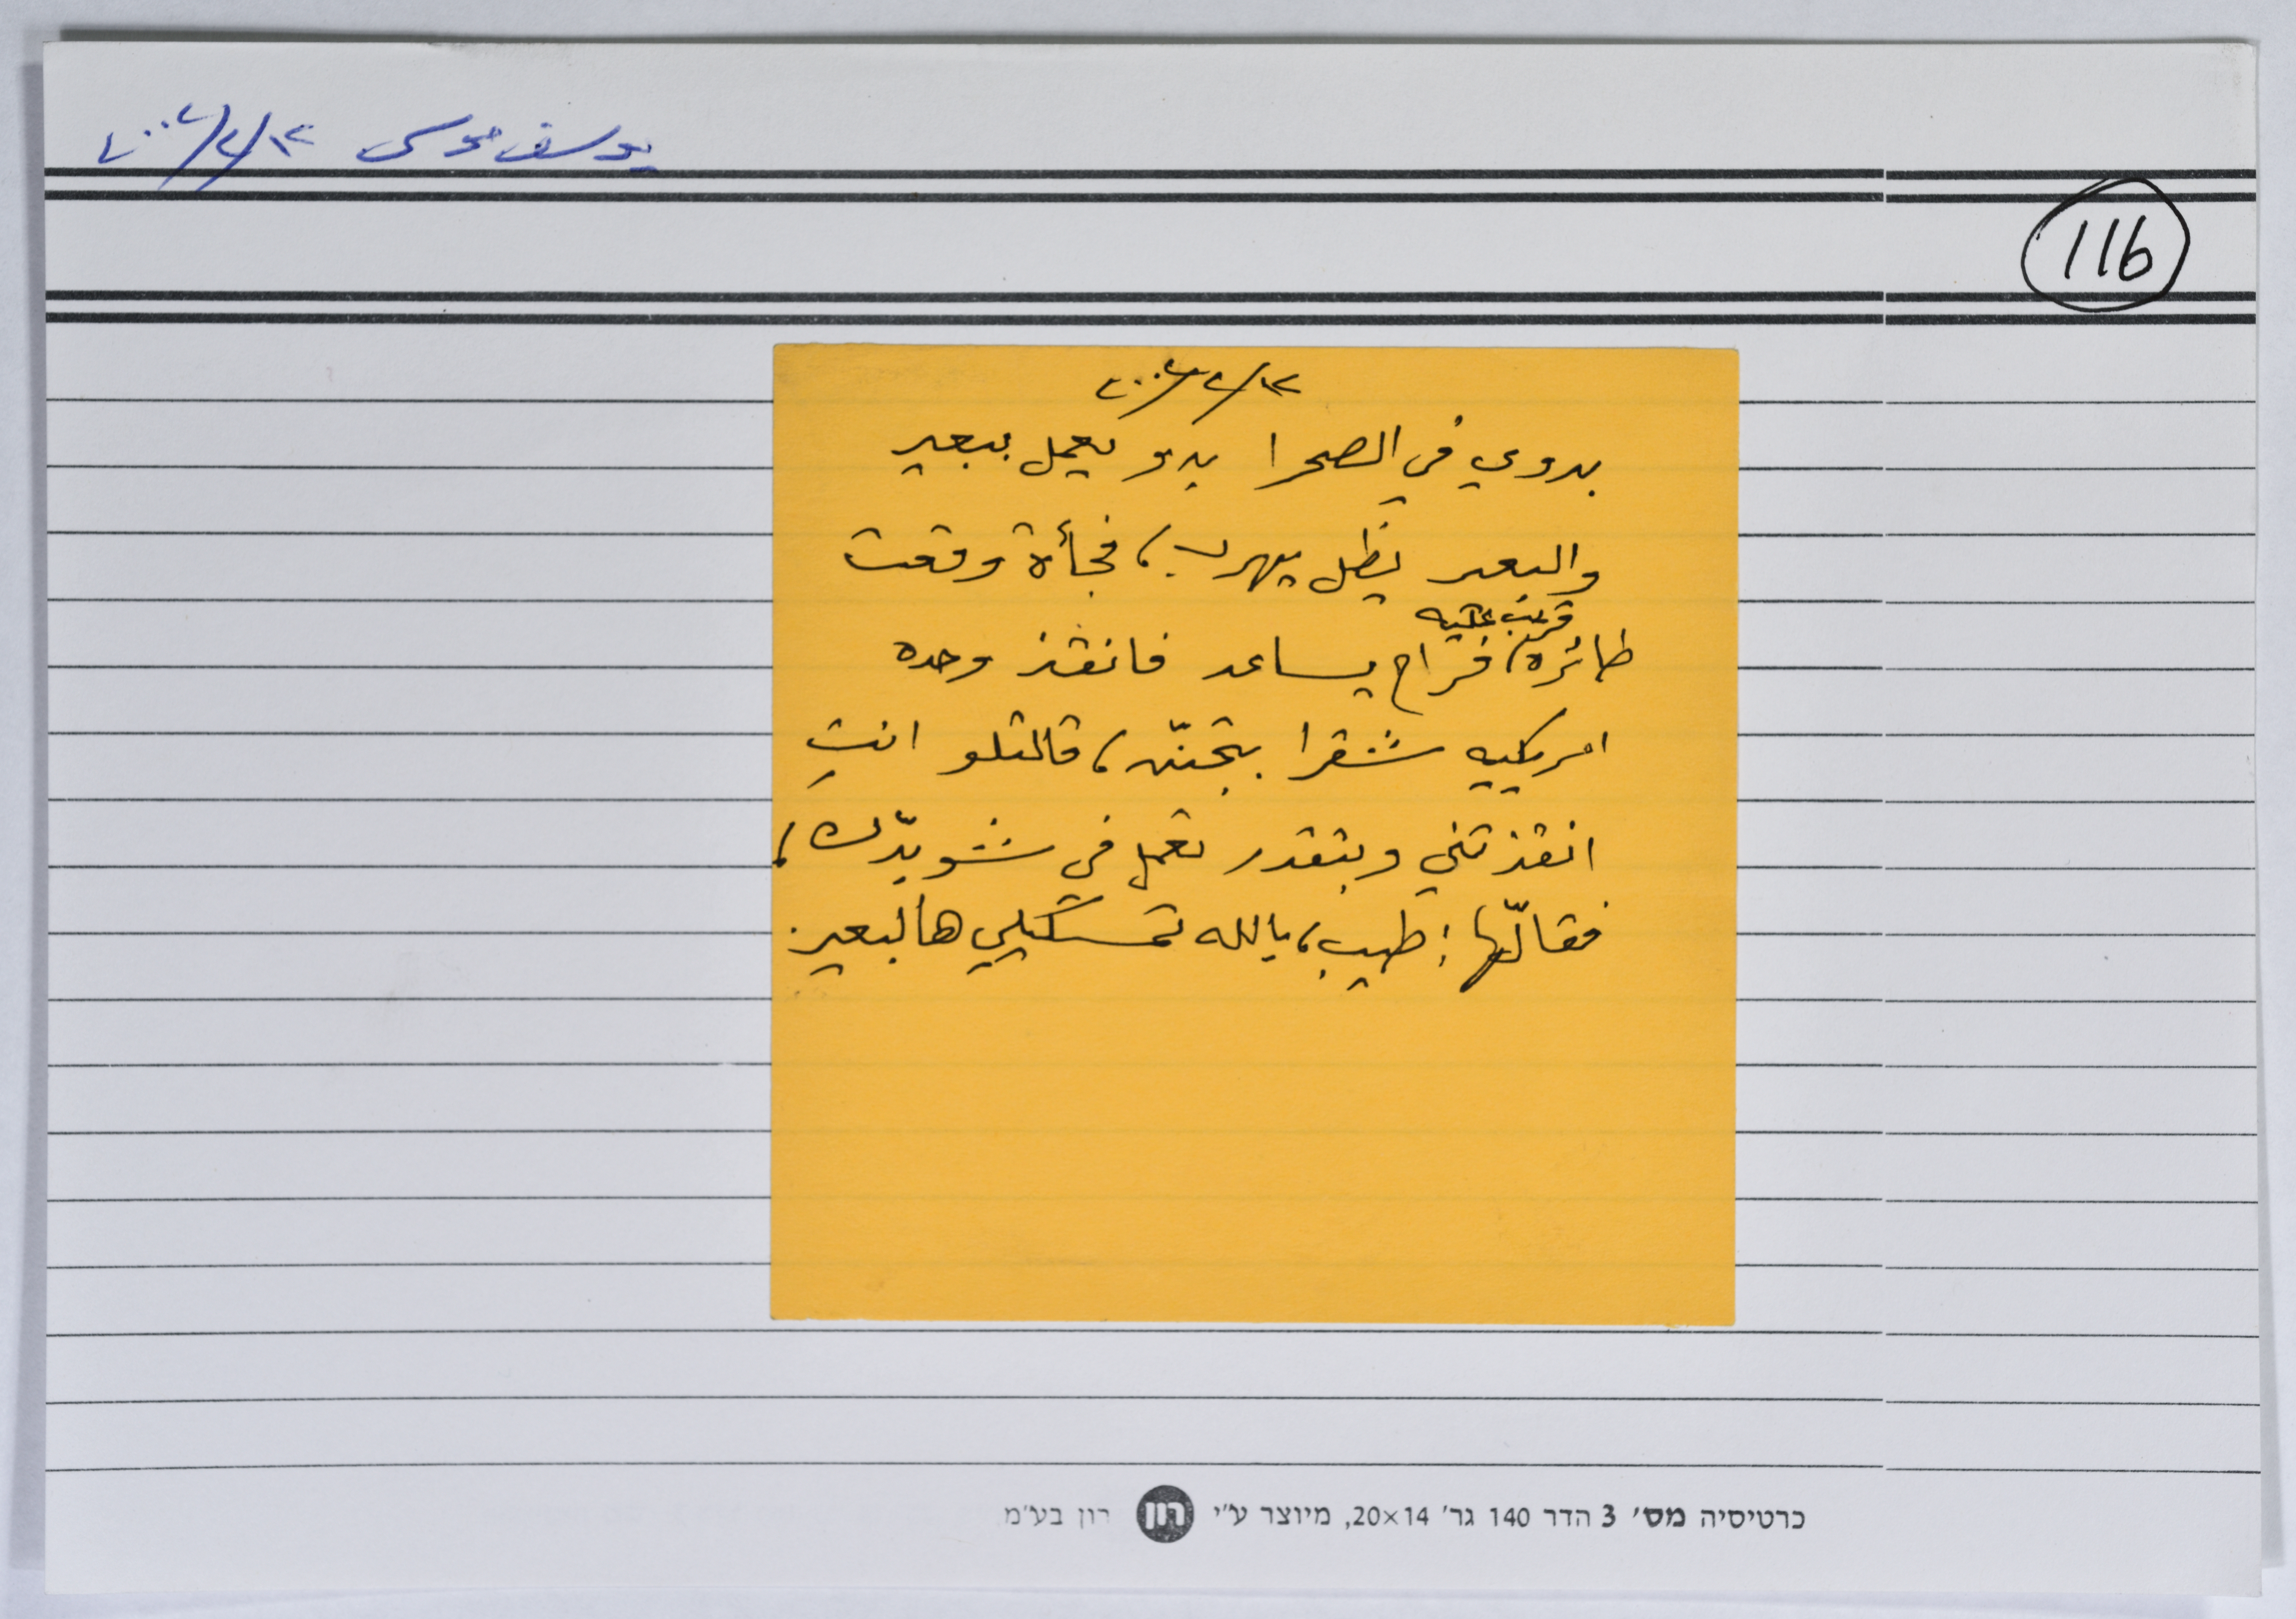 يوسف موسى ١٢/٢/٢٠٠٢
116
١٢/٢/٢٠٠٢
بدوي في الصحرا بدو يعمل ببعير
والبعير يظل يهرب، فجأة وقعت
قريب عليه
طائرة، فراح يساعد فانقذ وحده
امريكيه شقرا بتجنّن، قالتلو انتِ
انقذتني وبتقدر تعمل في شو بدّك،
فقالّها: طيب، يالله تمسكيلي هالبعير.
כרטיסיה מס׳ 3 הדר 140 גר׳ 20×14, מיוצר ע״י רון רון בע״מ